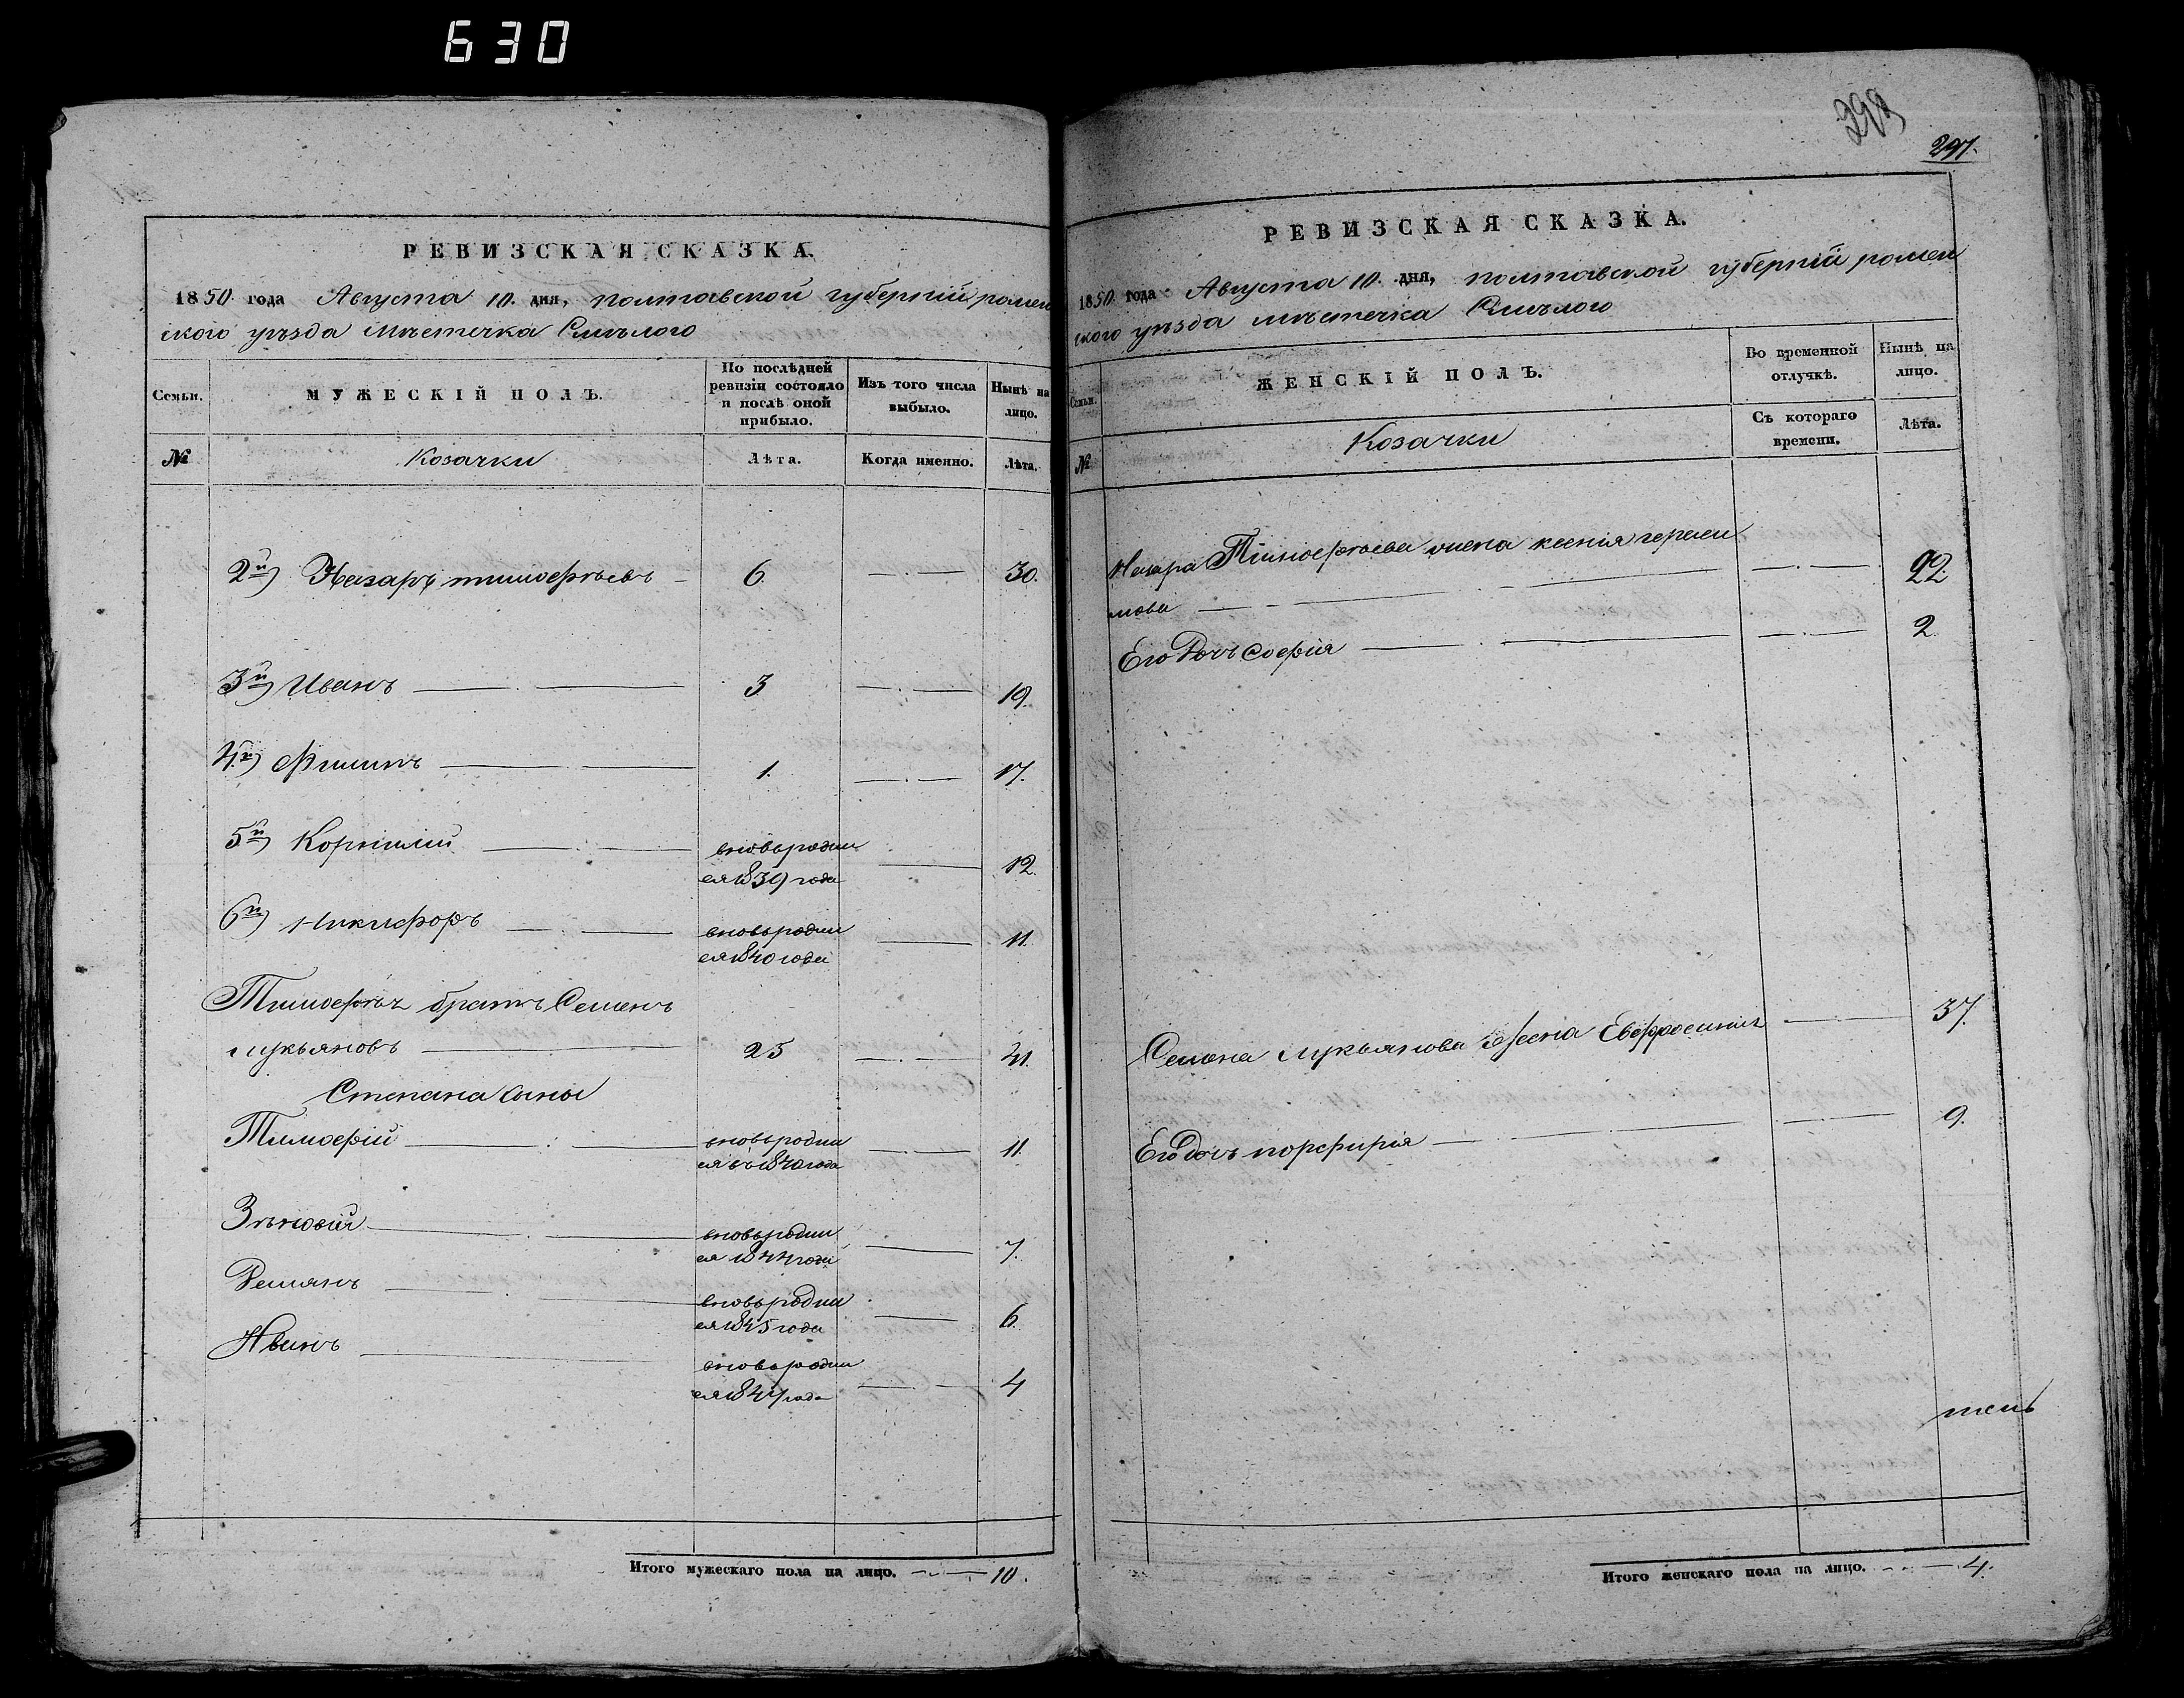 630
РЕВИЗСКАЯ СКАЗКА.
1850 года Августа 10. дня, полтавской губерніи ромен
ского уѣзда мѣстечка Смѣлого
Семьи.
МУЖЕСКІЙ ПОЛЪ.
По послѣдней ревизіи состояло и послѣ оной прибыло.
Изъ того числа выбыло.
Нынѣ на лицо.
№
Козачки
Лѣта.
Когда именно.
Лѣта.
2й) Назаръ тимофѣевъ 6. 30.
3й) Иванъ 3. 19.
4й) Филипъ 1. 17.
5й) Корнилій вновь родил
ся 1839 года 12.
6й) Никифоръ вновь родил
ся 1840 года 11.
Тимофѣя братъ Семенъ
лукьяновъ 25 41.
Степана сыны
Тимофій вновь родил
ся въ 1840 года 11.
Зѣновій вновь родил
ся 1844 года 7.
Демянъ вновь родил
ся 1845 года 6.
Иванъ вновь родил
ся 1847 года 4
Итого мужескаго пола на лицо. 10.
297.
РЕВИЗСКАЯ СКАЗКА.
1850 года Августа 10. дня, полтавской губерніи ромен
ского уѣзда мѣстечка Смѣлого
Семьи.
ЖЕНСКІЙ ПОЛЪ.
Во временной отлучкѣ.
Нынѣ на лицо.
№
Козачки
Съ котораго времени.
Лѣта.
Назара Тимофѣева жена ксенія гераси
мова 22.
Его дочь софія 2.
Семена лукьянова жена Евфросинія 37.
Его дочь порфирія 9.
Итого женскаго пола на лицо. 4.